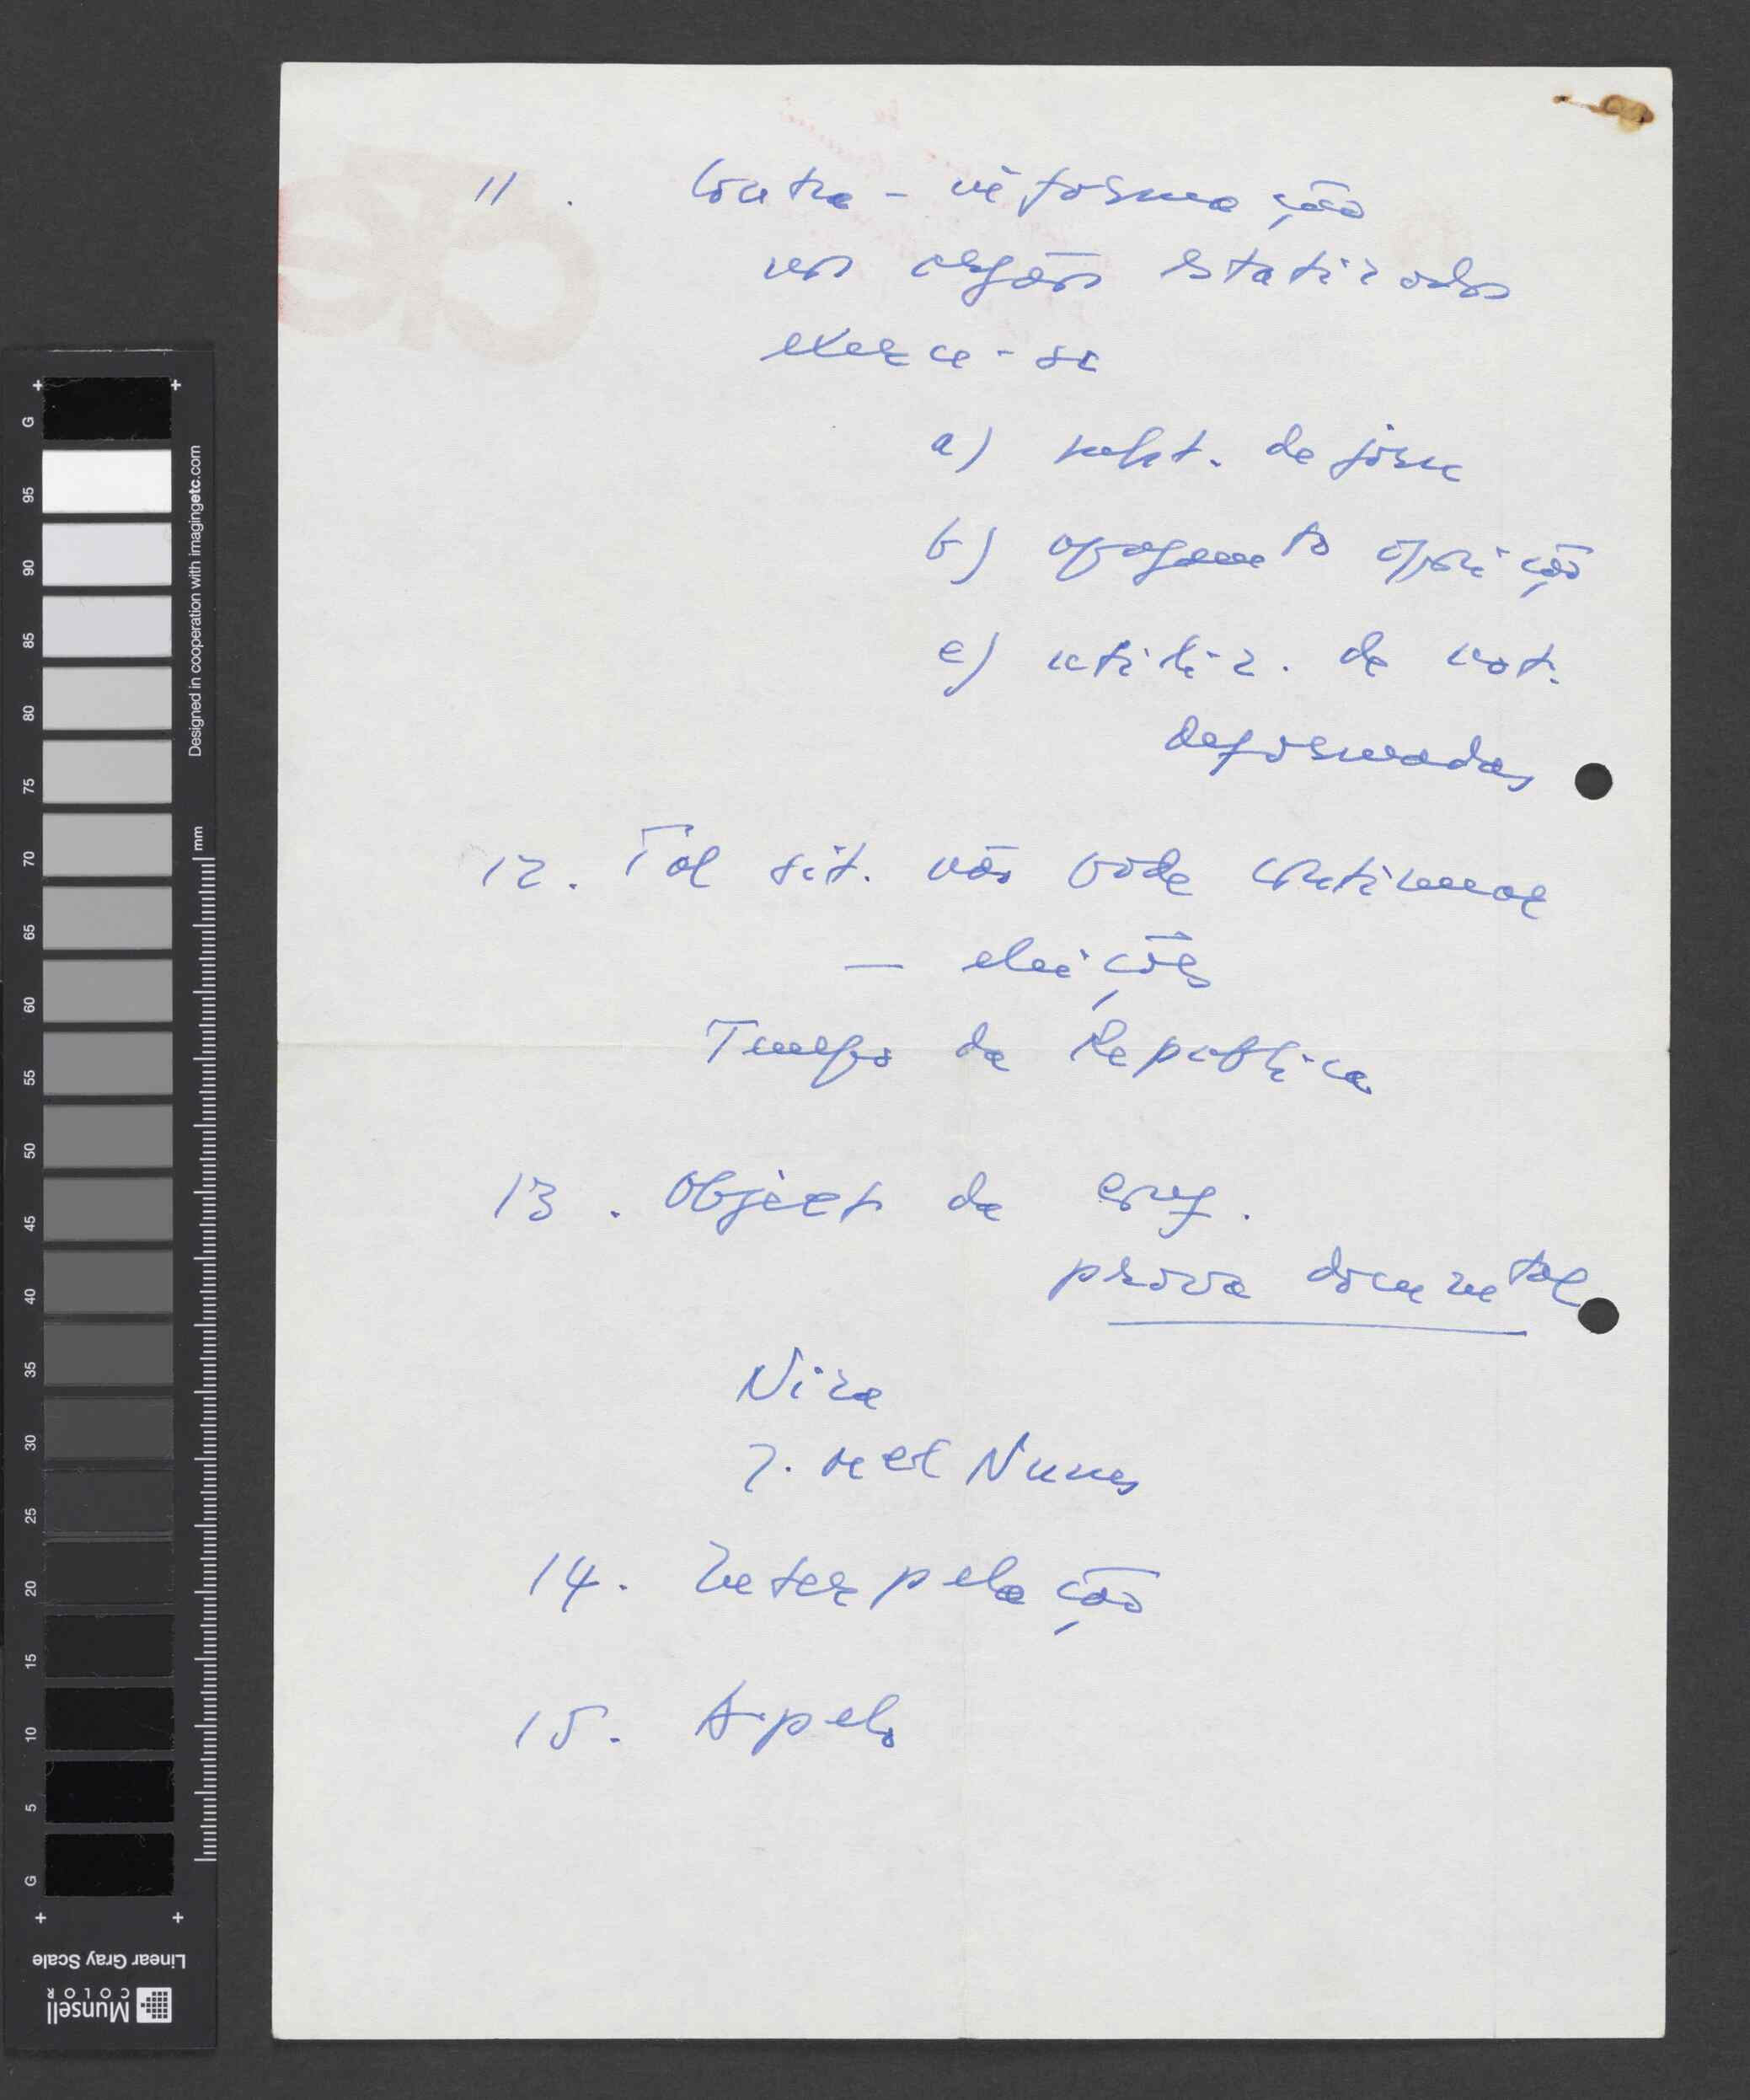 11. Contra-informação
nos orgãos estatizados
exerce-se
a) de
b) apagamento oposição
c) utiliz. de not.
deformadas
12. Tal sit. não pode continuar
— eleições
Tempo da República
13. Object da
prova documental
Nunes
14. Interpelação
15. Apelo
Designed in cooperation with imagingetc.com
mm
G 95 90 85 80 75 70 65 60 55 50 45 40 35 30 25 20 15 10 5 G
Linear Gray Scale
Munsell
COLOR